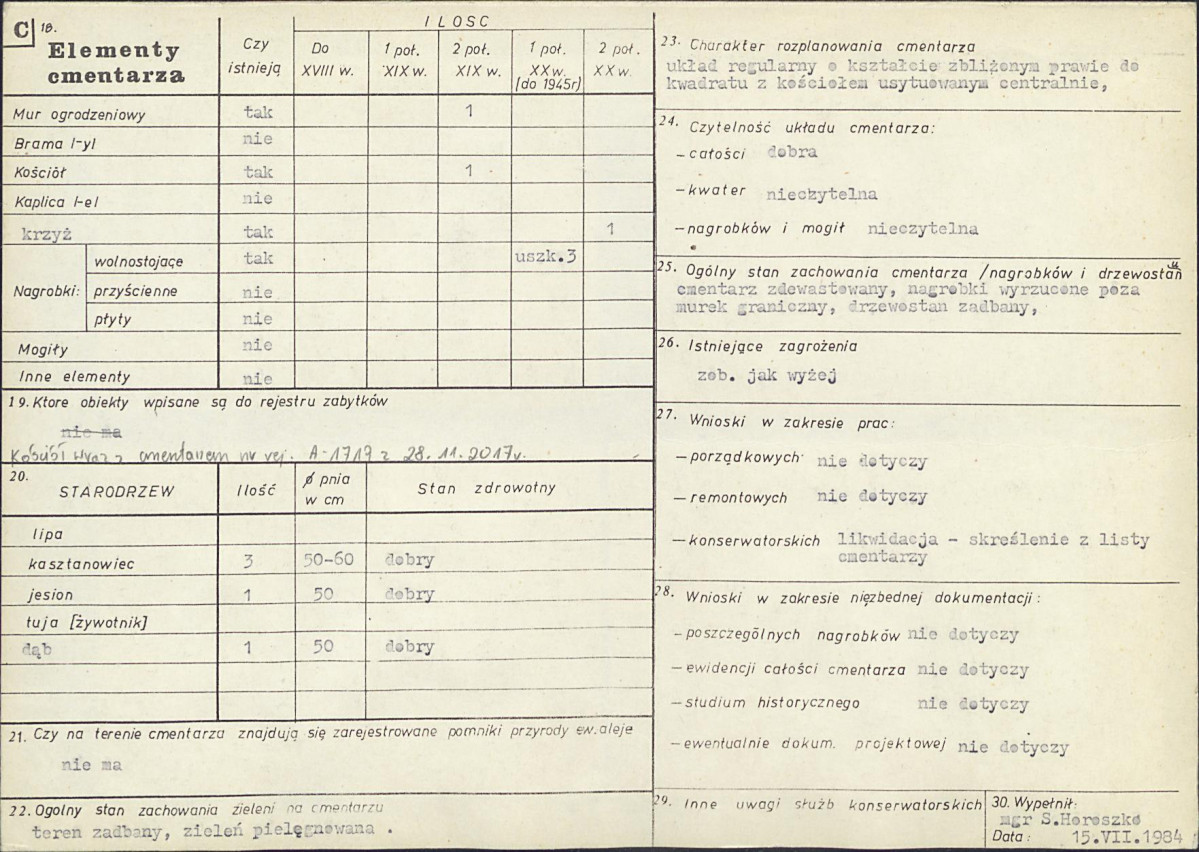 C 18.
Elementy
cmentarza
Czy
istnieją
ILOSC
Do
XVIII w.
1 poł.
XIX w.
2 poł.
XIX w.
1 poł.
XX w.
(do 1945r)
2 poł.
XX w.
Mur ogrodzeniowy tak 1
Brama l-yl nie
Kościół tak 1
Kaplica l-el nie
krzyż tak 1
Nagrobki: wolnostojące tak uszk.3
przyścienne nie
płyty nie
Mogiły nie
Inne elementy nie
19. Ktore obiekty wpisane są do rejestru zabytków
nie ma
Kościół wraz z cmentarzem nr rej. A-1717 z 28.11.2017r.
20. STARODRZEW Ilość ø pnia
w cm Stan zdrowotny
lipa
kasztanowiec 3 50-60 dobry
jesion 1 50 dobry
tuja [żywotnik]
dąb 1 50 dobry
21. Czy na terenie cmentarza znajdują się zarejestrowane pomniki przyrody ew. aleje
nie ma
22. Ogolny stan zachowania zieleni na cmentarzu
teren zadbany, zieleń pielęgnowana .
23. Charakter rozplanowania cmentarza
układ regularny o kształcie zbliżonym prawie do
kwadratu z kościołem usytuowanym centralnie,
24. Czytelność układu cmentarza:
- całości dobra
- kwater nieczytelna
- nagrobków i mogił nieczytelna
25. Ogólny stan zachowania cmentarza /nagrobków i drzewostanu
cmentarz zdewastowany, nagrobki wyrzucone poza
murek graniczny, drzewostan zadbany,
26. Istniejące zagrożenia
zob. jak wyżej
27. Wnioski w zakresie prac:
- porządkowych nie dotyczy
- remontowych nie dotyczy
- konserwatorskich likwidacja - skreślenie z listy
cmentarzy
28. Wnioski w zakresie nięzbednej dokumentacji:
- poszczególnych nagrobków nie dotyczy
- ewidencji całości cmentarza nie dotyczy
- studium historycznego nie dotyczy
- ewentualnie dokum. projektowej nie dotyczy
29. Inne uwagi służb konserwatorskich
30. Wypełnił:
mgr S.Horoszko
Data: 15.VII.1984